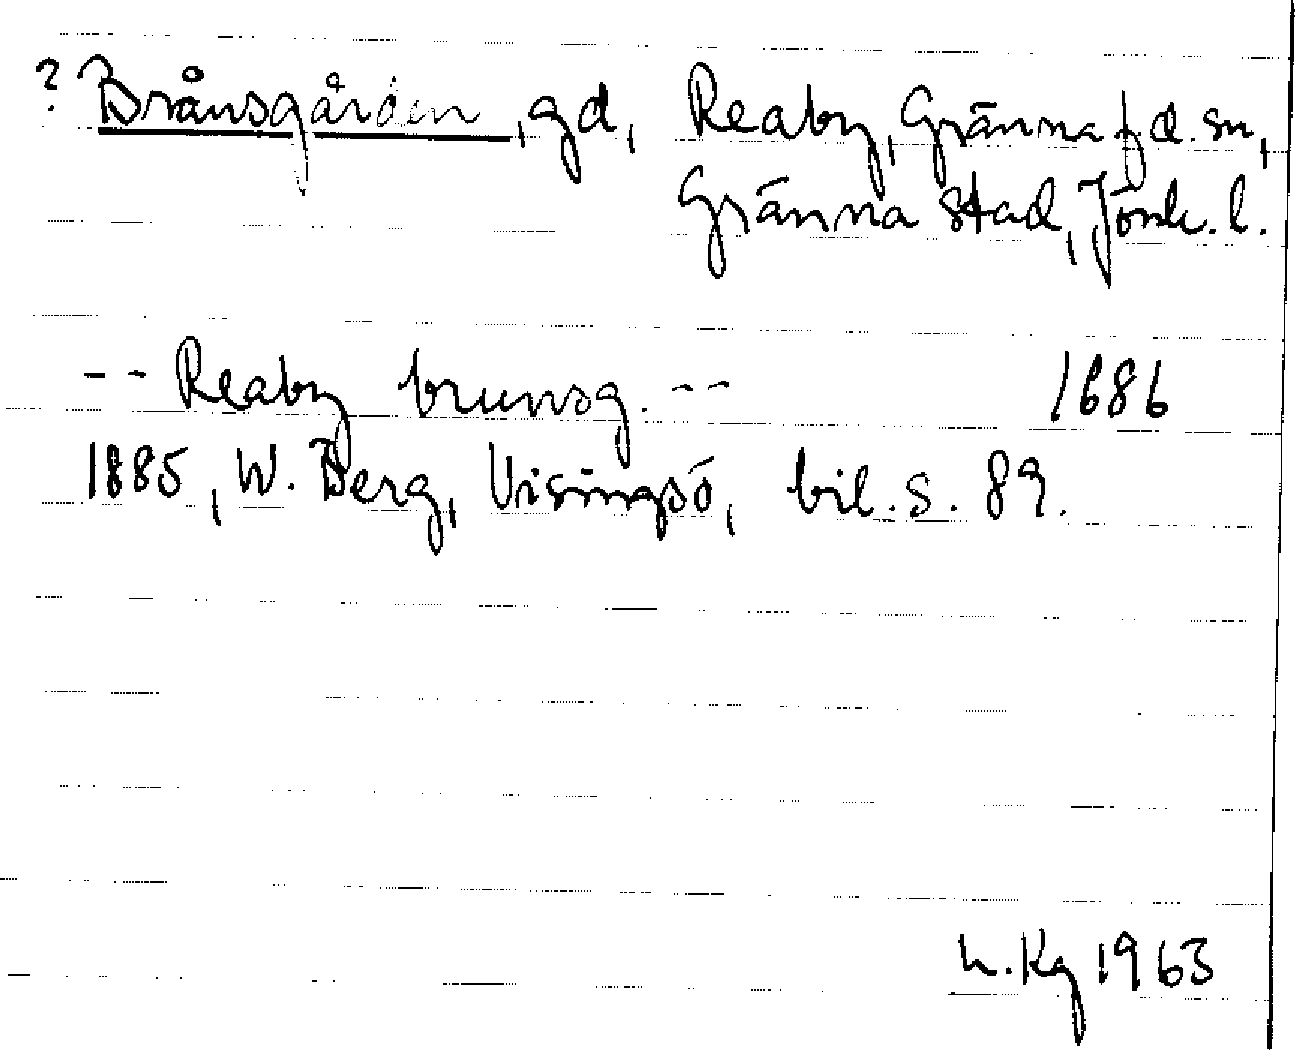 ? Brånsgården, gd, Reaby, Gränna fd. sn,
Gränna stad, Jönk. l.
-- Reaby brunsg. -- 1686
1885, W. Berg, Visingsö, bil. s. 89.
h. Kg 1963